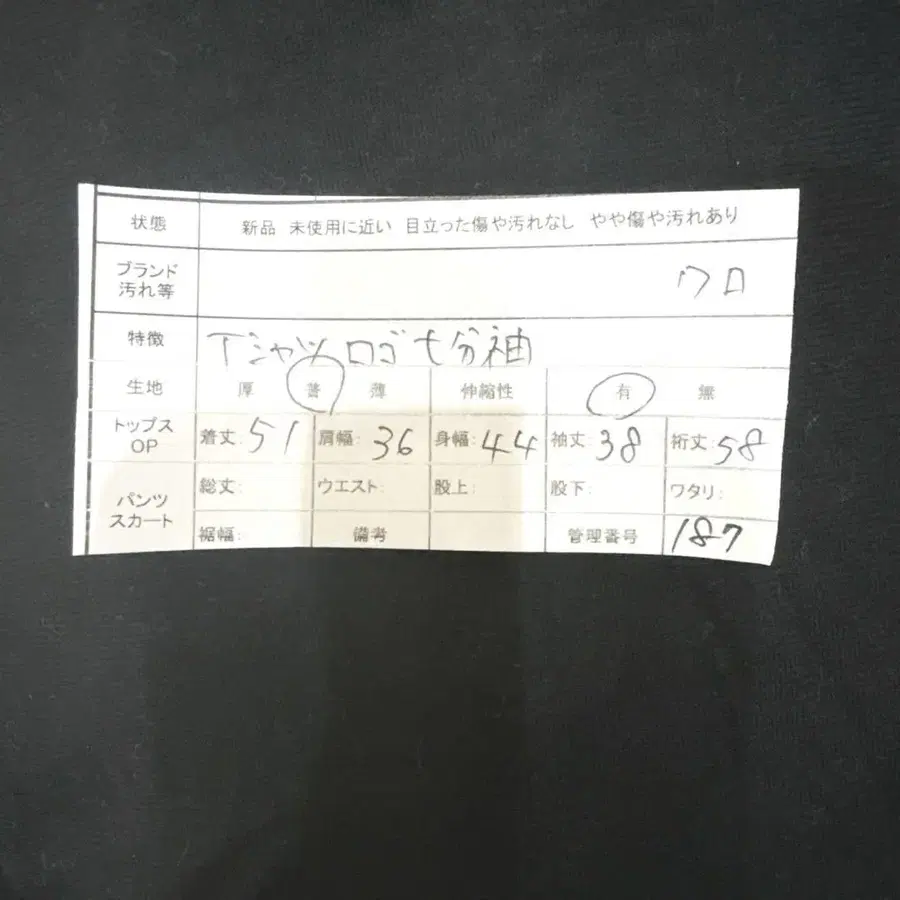 状態 新品 未使用に近い 目立った傷や汚れなし やや傷や汚れあり
ブランド
汚れ等 クロ
特徴 Tシャツ ロゴ 七分袖
生地 厚 普 薄 伸縮性 有 無
トップス
OP 着丈: 51 肩幅: 36 身幅: 44 袖丈: 38 裄丈: 58
パンツ
スカート 総丈: ウエスト: 股上: 股下: ワタリ:
裾幅: 備考 管理番号 187